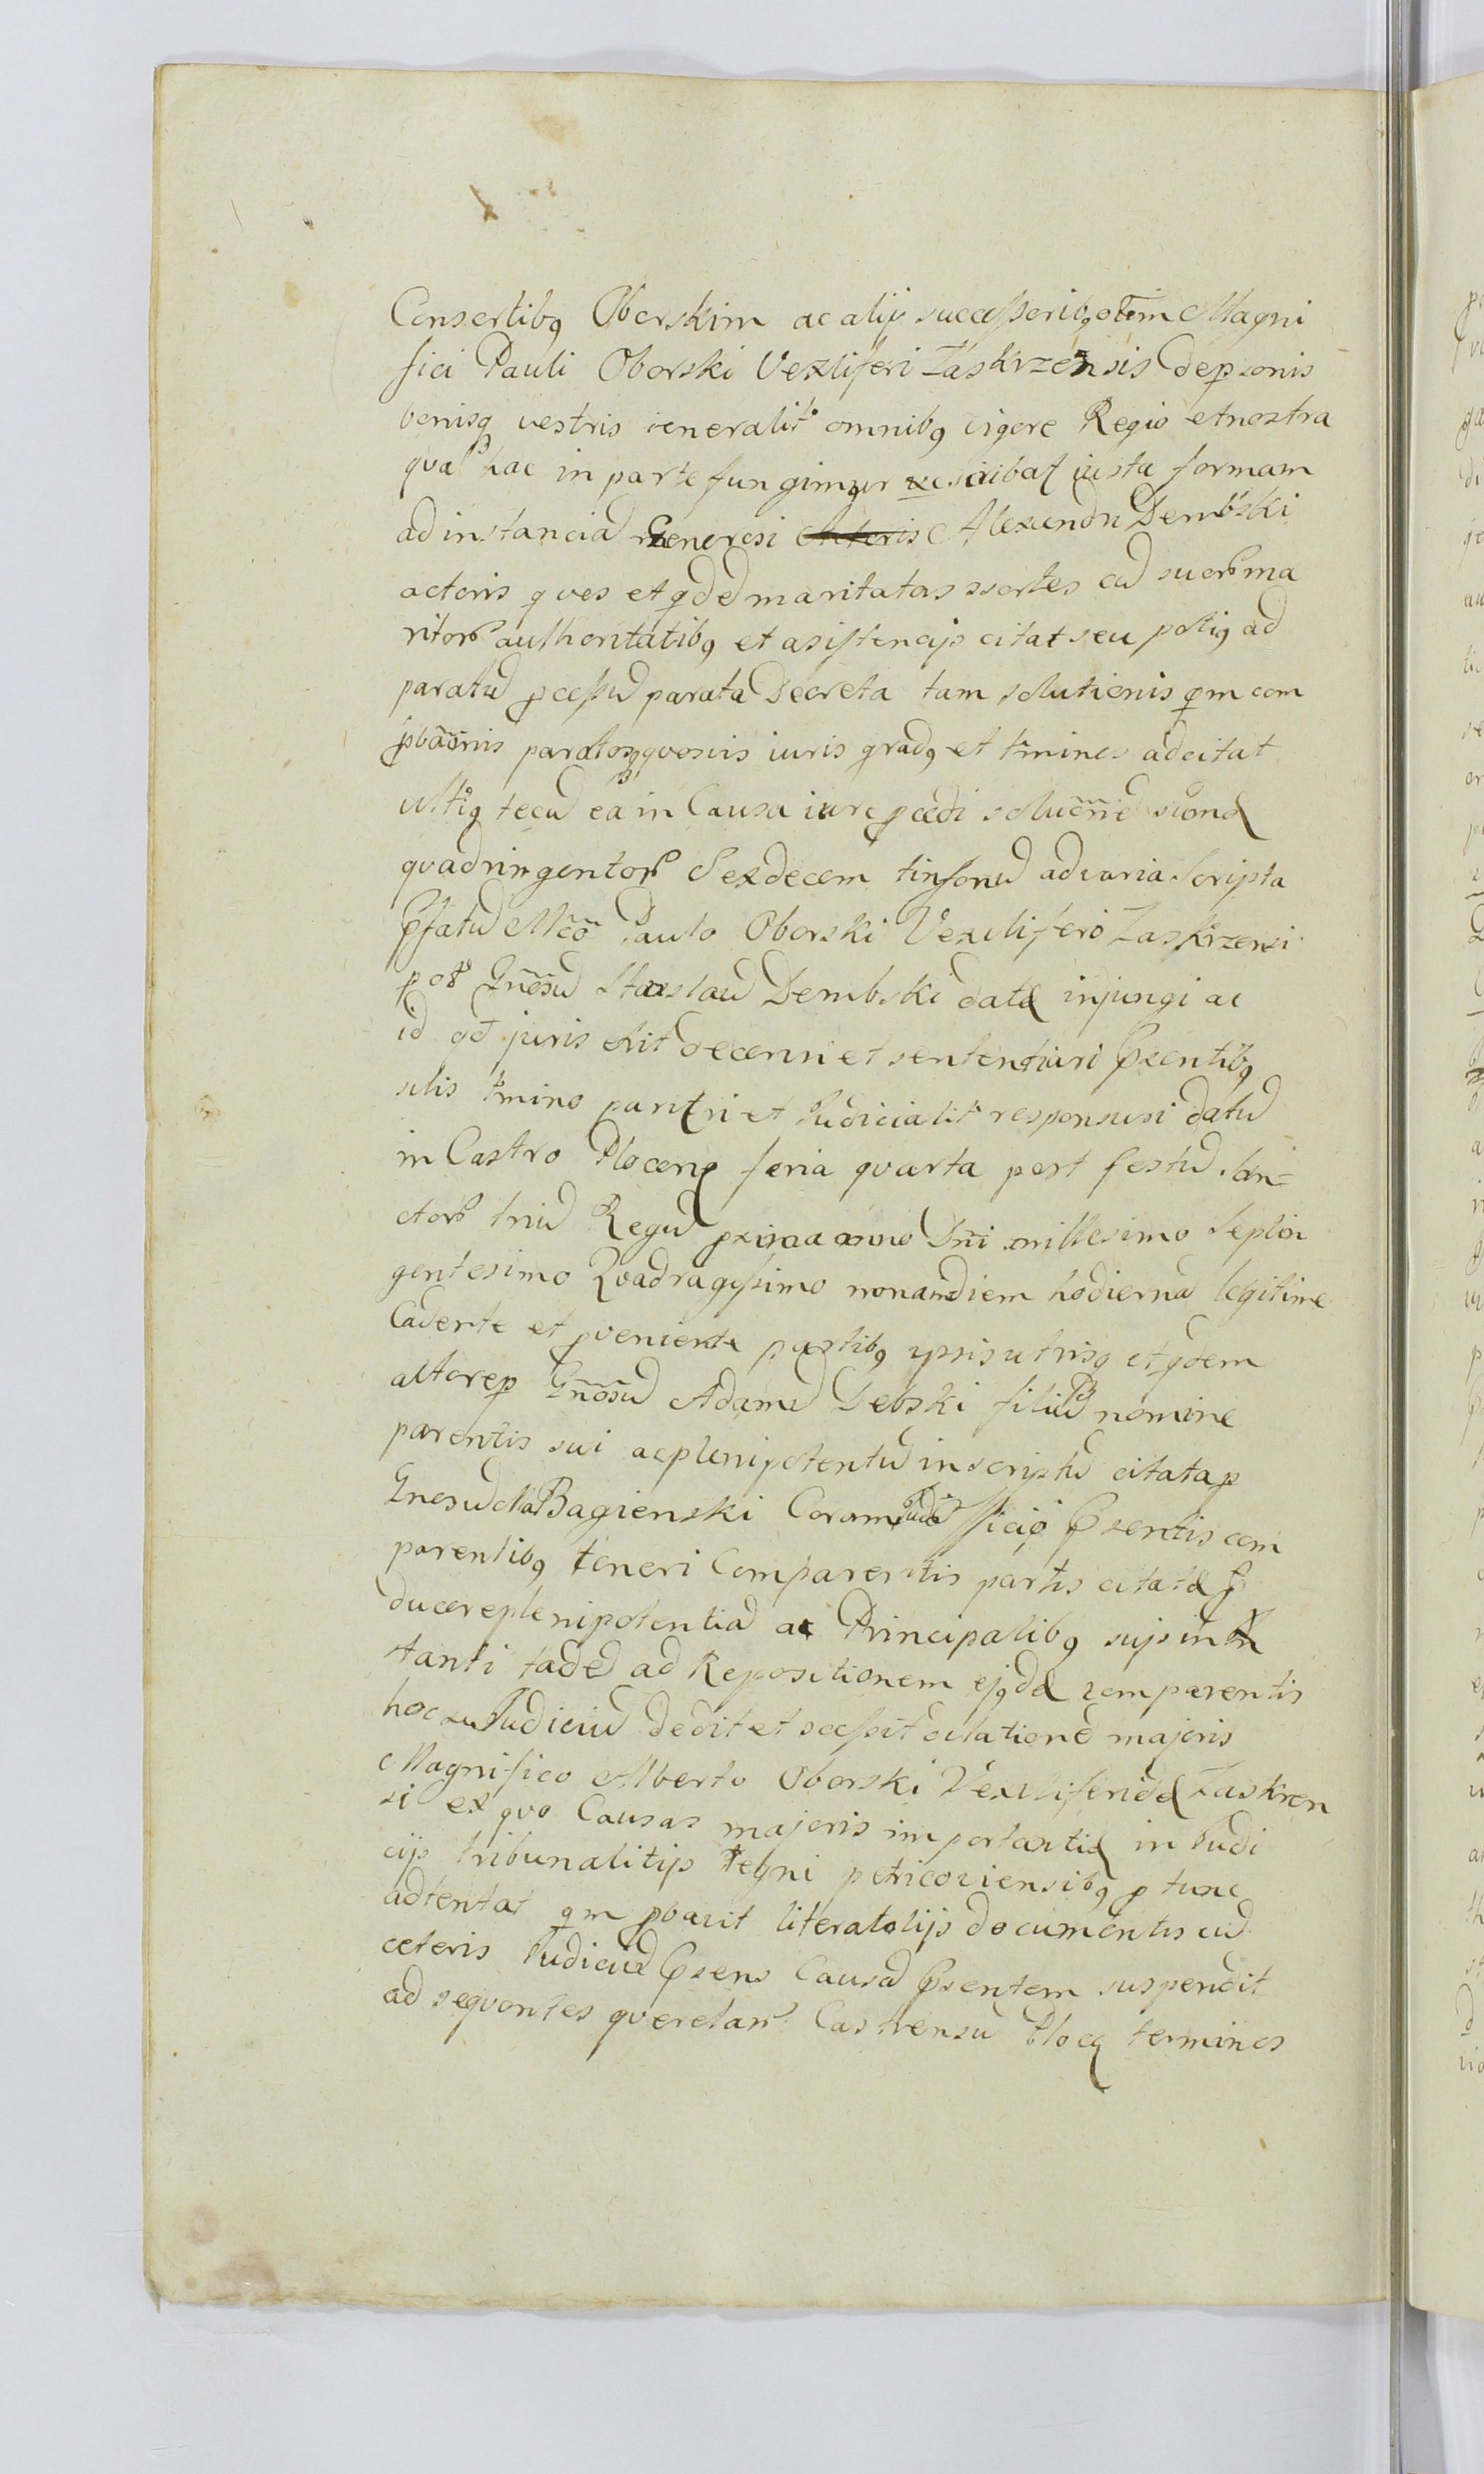 Consortibꝯ Oborskim ac alijs successoribꝯ olim Magni
fici Pauli Oborski Vexliferi Zaskrzensis de psonis
bonisq vestris generalit omnibꝯ vigore Regio et nostra
qua hac in parte fungimur xescribaꝭ iusta formam
ad instanciaɖ Generosi Actoris Alexendri Dembski
actoris q vos et qdeɖ maritatas ssortes cuɖ suorꝰ ma
ritorꝰ authoritatibꝯ et asistencijs citat seu potiꝯ ad
paratuɖ pcessuɖ parata Decreta tam solutionis qm com
pbãõnis paratosq quosvis iuris gradꝯ et tminos adcitat
ultiꝯ tecuɖ ea in Causa iure pcedi soluc̃ñe sum̃aꝭ
quadringentorꝰ Sexdecem tinfonuɖ ad varia Scripta
Pfatuɖ Mc̃o Paulo Oborski Vexilifero Zaskrzensi
p oꝉ Gñosuɖ Staislauɖ Dembski dataꝭ injungi ac
id qd juris erit decerni et sententiari Psentibꝯ
solis tmino pariꝭri et Judicialit responsuri datuɖ
in Castro Plocenꝭ feria quarta post festuɖ San=
ctorꝰ triuɖ Reguɖ pxima anno Dñi millesimo Septin
gentesimo Quadragesimo nonandiem hodiernaɖ legitime
Cadente et pveniente partibꝯ ipsis utrisq et qdem
actorep Gñosuɖ Adamuɖ Debski filiuɖ nomine
parentis sui ac plenipotentuɖ inscriptuɖ citata p
Gnosuɖ Bagienski Coram Judicio fficio Psentis com
parentibꝯ teneri Comparentis partis citataꝭ P
ducere plenipotentiaɖ ac Principalibꝯ suis in
stanti tadeɖ ad Repositionem ejꝯdꝭ comparentis
hoc Judiciuɖ dedit et scessit dilationẽ majoris
Magnifico Alberto Oborski Vexiliferidꝭ Zaskren
si ex quo Causas majoris importantiꝭ in Judi
cijs tribunalitijs Regni petricoviensibꝯ p tunc
adtentat qm pbavit literatolijs documentis cuɖ
ceteris Judiciuɖ Psens Causaɖ Psentem suspendit
ad sequentes querelarꝰ Castrensiu Plocꝭ terminos